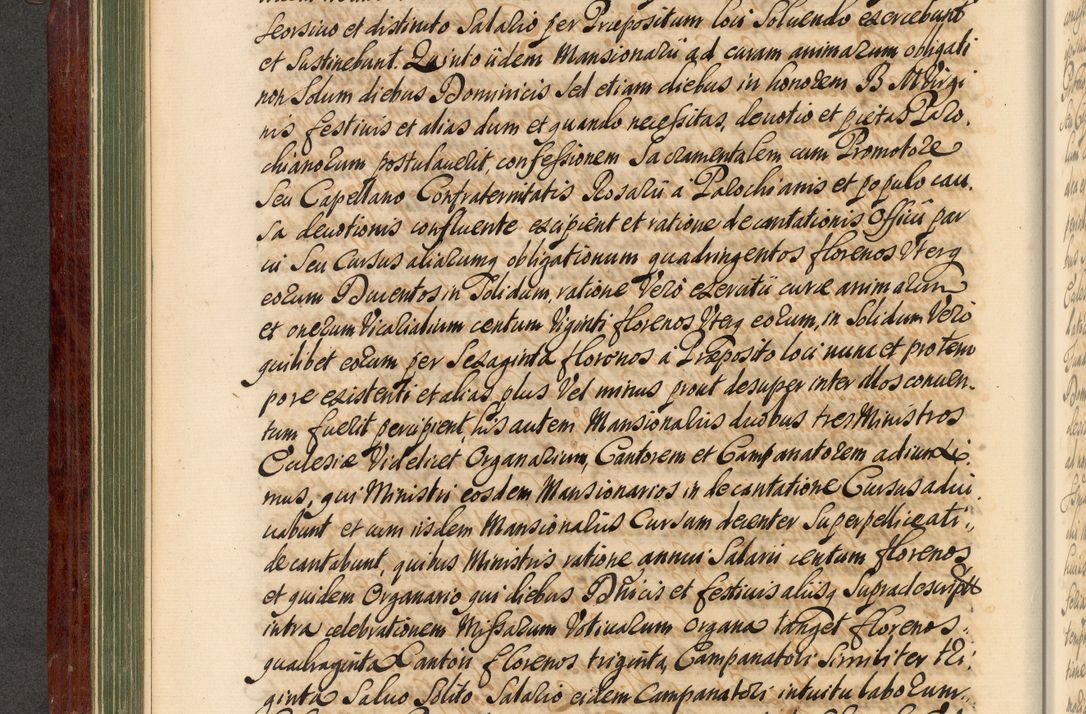 seorsivo et distincto Salario per Præpositum loci Solvendo exercebunt
et Sustinebunt. Quinto iidem Mansionarii ad curam animarum obligati
non Solum diebus Dominicis Sed etiam diebus in honorem B. M. Virgi
nis festivis et alias dum et quando necessitas, devotio et pietas Paro.
chianorum postulaverit, confessionem Sacramentalem cum Promotore
Seu Capellano Confraternitatis Rosarii a Parochianis et populo cau.
sa devotionis confluente excipient et ratione decantationis Officii par
vi Seu Cursus aliarumq obligationum quadringentos florenos Uterq
eorum Ducentos in Solidum, ratione Vero exercitii curæ animarum
et onerum Vicarialium centum Viginti florenos Uterq eorum, in Solidum Vero
quilibet eorum per Sexaginta florenos a Præposito loci nunc et pro tem
pore existenti et alias plus Vel minus prout desuper inter illos conven.
tum fuerit percipient, his autem Mansionariis duobus tres Ministros
Ecclesiæ Videlicet Organarium, Cantorem et Campanatorem adiunxi.
mus, qui Ministri eosdem Mansionarios in decantatione Cursus adiu.
vabunt et cum iisdem Mansionariis Cursum decenter Superpelliceati
decantabunt, quibus Ministris ratione annui Salarii centum florenos
et quidem Organario qui diebus Dnicis et festivis aliisq Supradescriptt
intra celebrationem Missarum Votivarum organa tanget florenos
quadraginta Cantori florenos triginta, Campanatori Similiter tri.
ginta Salvo Solito Salario eidem Campanatori intuitu laborum